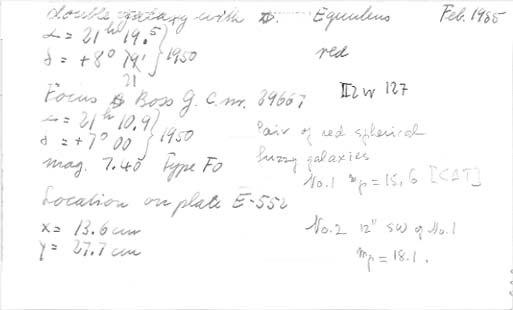 double galaxy with Equuleus Feb. 1985
α = 21h 19.5
δ = +8° 19' } 1950 red
21
Focus Boss G.C. nr. 29667 II Zw 127
α = 21h 10.9
δ = +7° 00 } 1950 Pair of red spherical
mag. 7.40 Type F0 fuzzy galaxies
No.1 mp = 15,6 [CAT]
Location on plate E-552
x = 13.6 cm No.2 12" SW of No.1
y = 27.7 cm mp = 18.1.